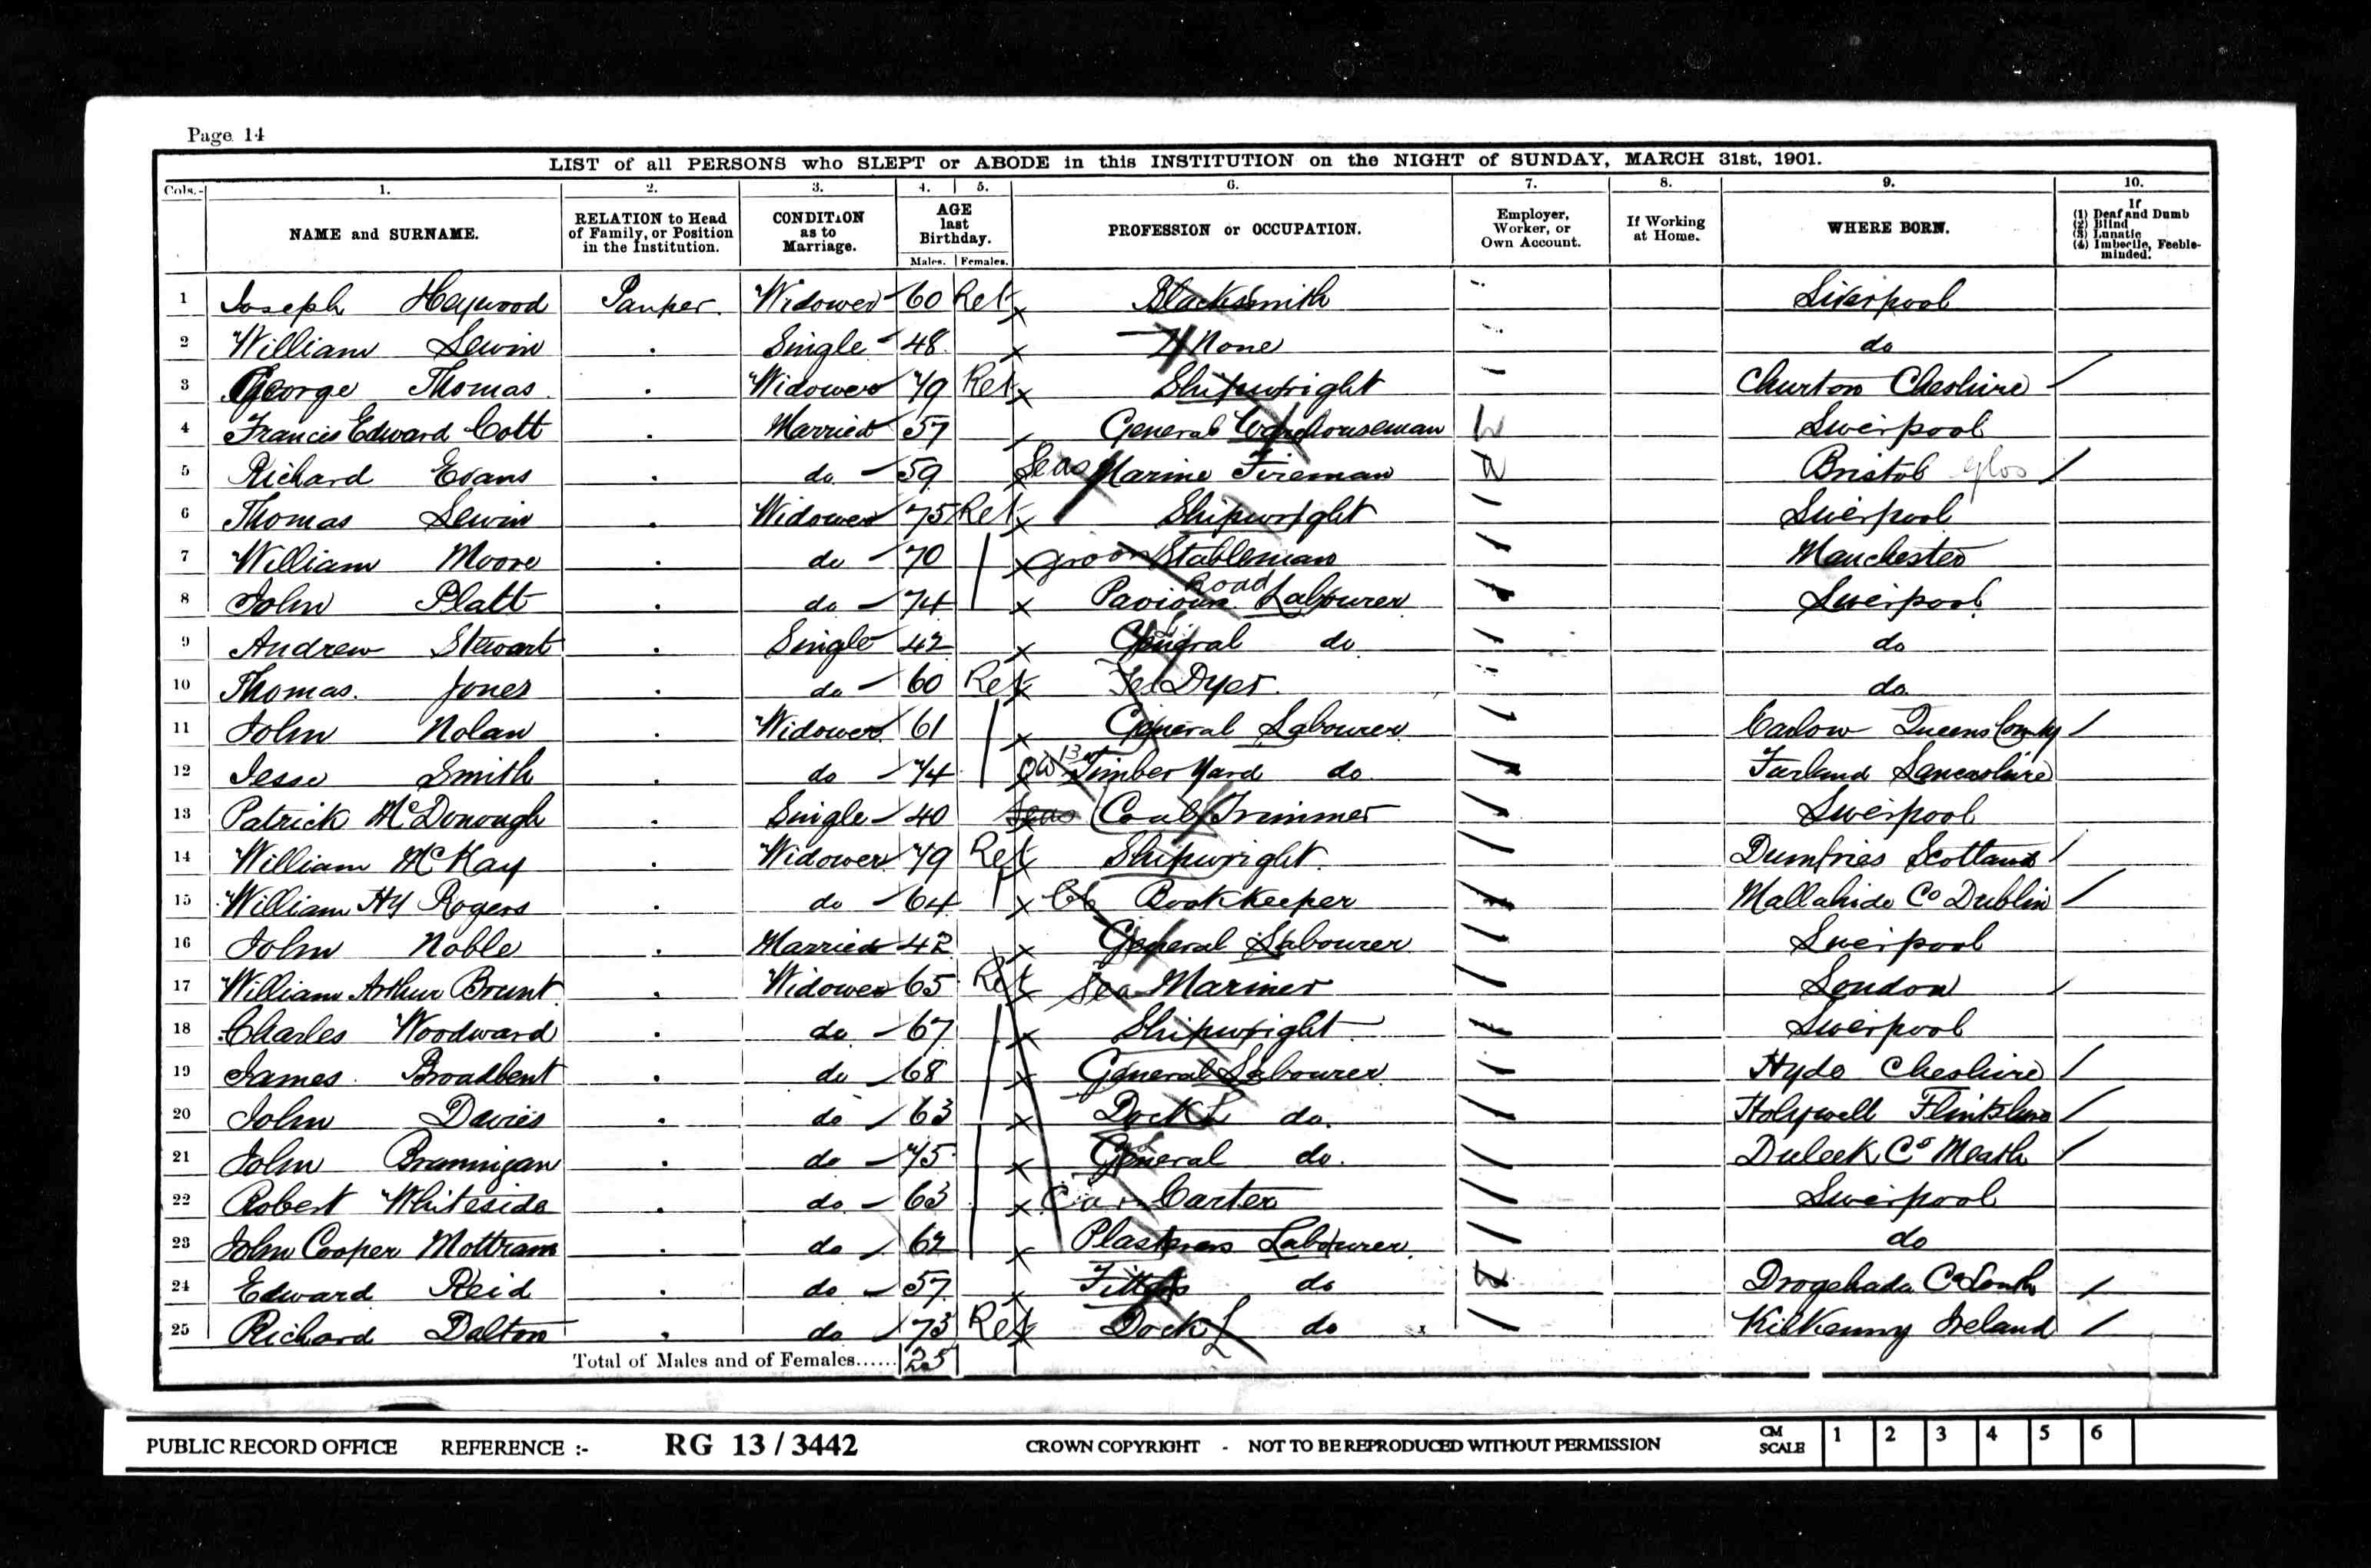 Page 14
LIST of all PERSONS who SLEPT or ABODE in this INSTITUTION on the NIGHT of SUNDAY, MARCH 31st, 1901.
Cols.- 1. 2. 3. 4. 5. 6. 7. 8. 9. 10.
NAME and SURNAME. RELATION to Head of Family, or Position in the Institution. CONDITION as to Marriage. AGE last Birthday. Males. Females. PROFESSION or OCCUPATION. Employer, Worker, or Own Account. If Working at Home. WHERE BORN. If (1) Deaf and Dumb (2) Blind (3) Lunatic (4) Imbecile, Feeble-minded.
1 Joseph Heywood Pauper. Widower 60 Ret x Blacksmith Liverpool
2 William Lewin . Single 48 x None do
3 George Thomas . Widower 79 Ret x Shipwright Churton Cheshire
4 Francis Edward Cott . Married 57 General Warehouseman W Liverpool
5 Richard Evans . do 59 Seas Marine Fireman W Bristol Glos
6 Thomas Lewin . Widower 75 Ret x Shipwright Liverpool
7 William Moore . do 70 x Groom Stableman Manchester
8 John Platt . do 74 x Paviour Road Labourer Liverpool
9 Andrew Stewart . Single 42 x General do do
10 Thomas Jones . do 60 Ret x Dyer do
11 John Nolan . Widower 61 x General Labourer Carlow Queens County
12 Jesse Smith . do 74 Timber Yard do Lancashire
13 Patrick McDonough . Single 40 Seas Coal Trimmer Liverpool
14 William McKay . Widower 79 Ret x Shipwright Dumfries Scotland
15 William Hy Rogers . do 64 x Book Keeper Mallahide Co Dublin
16 John Noble . Married 42 x General Labourer Liverpool
17 William Arthur Brunt . Widower 65 Ret x Sea Mariner London
18 Charles Woodward . do 67 x Shipwright Liverpool
19 James Broadbent . do 68 x General Labourer Hyde Cheshire
20 John Davies . do 63 x Dock L do. Holywell Flintshire
21 John Brannigan . do 75 x General do. Duleek Co Meath
22 Robert Whiteside . do 63 x Carter Liverpool
23 John Cooper Mottram . do 62 x Plasterers Labourer. do
24 Edward Reid . do 57 x Fitters do W Drogehada Co Louth
25 Richard Dalton . do 73 Ret x Dock L do x Kilkenny Ireland
Total of Males and of Females...... 25
PUBLIC RECORD OFFICE REFERENCE :- RG 13 / 3442 CROWN COPYRIGHT - NOT TO BE REPRODUCED WITHOUT PERMISSION CM SCALE 1 2 3 4 5 6